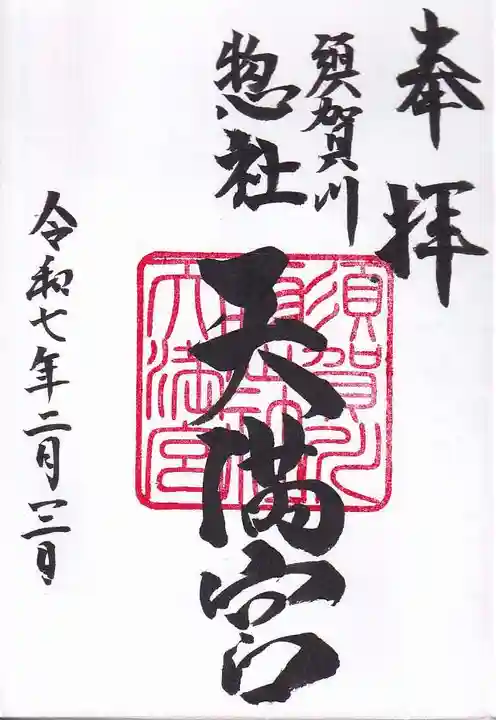 奉拝
須賀川
惣社
天満宮
令和七年二月三日
須賀川
天満宮